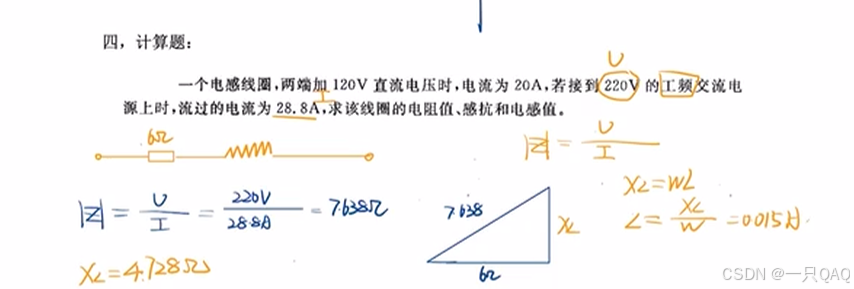 四，计算题：
U
一个电感线圈，两端加 120V 直流电压时，电流为 20A，若接到 220V 的工频交流电
源上时，流过的电流为 28.8A，求该线圈的电阻值、感抗和电感值。
I
6Ω
|Z| = U/I
|Z| = U/I = 220V/28.8A = 7.638Ω
7.638
XL
6Ω
XL=WL
L = XL/W = 0.015H
XL=4.728Ω
CSDN @一只QAQ